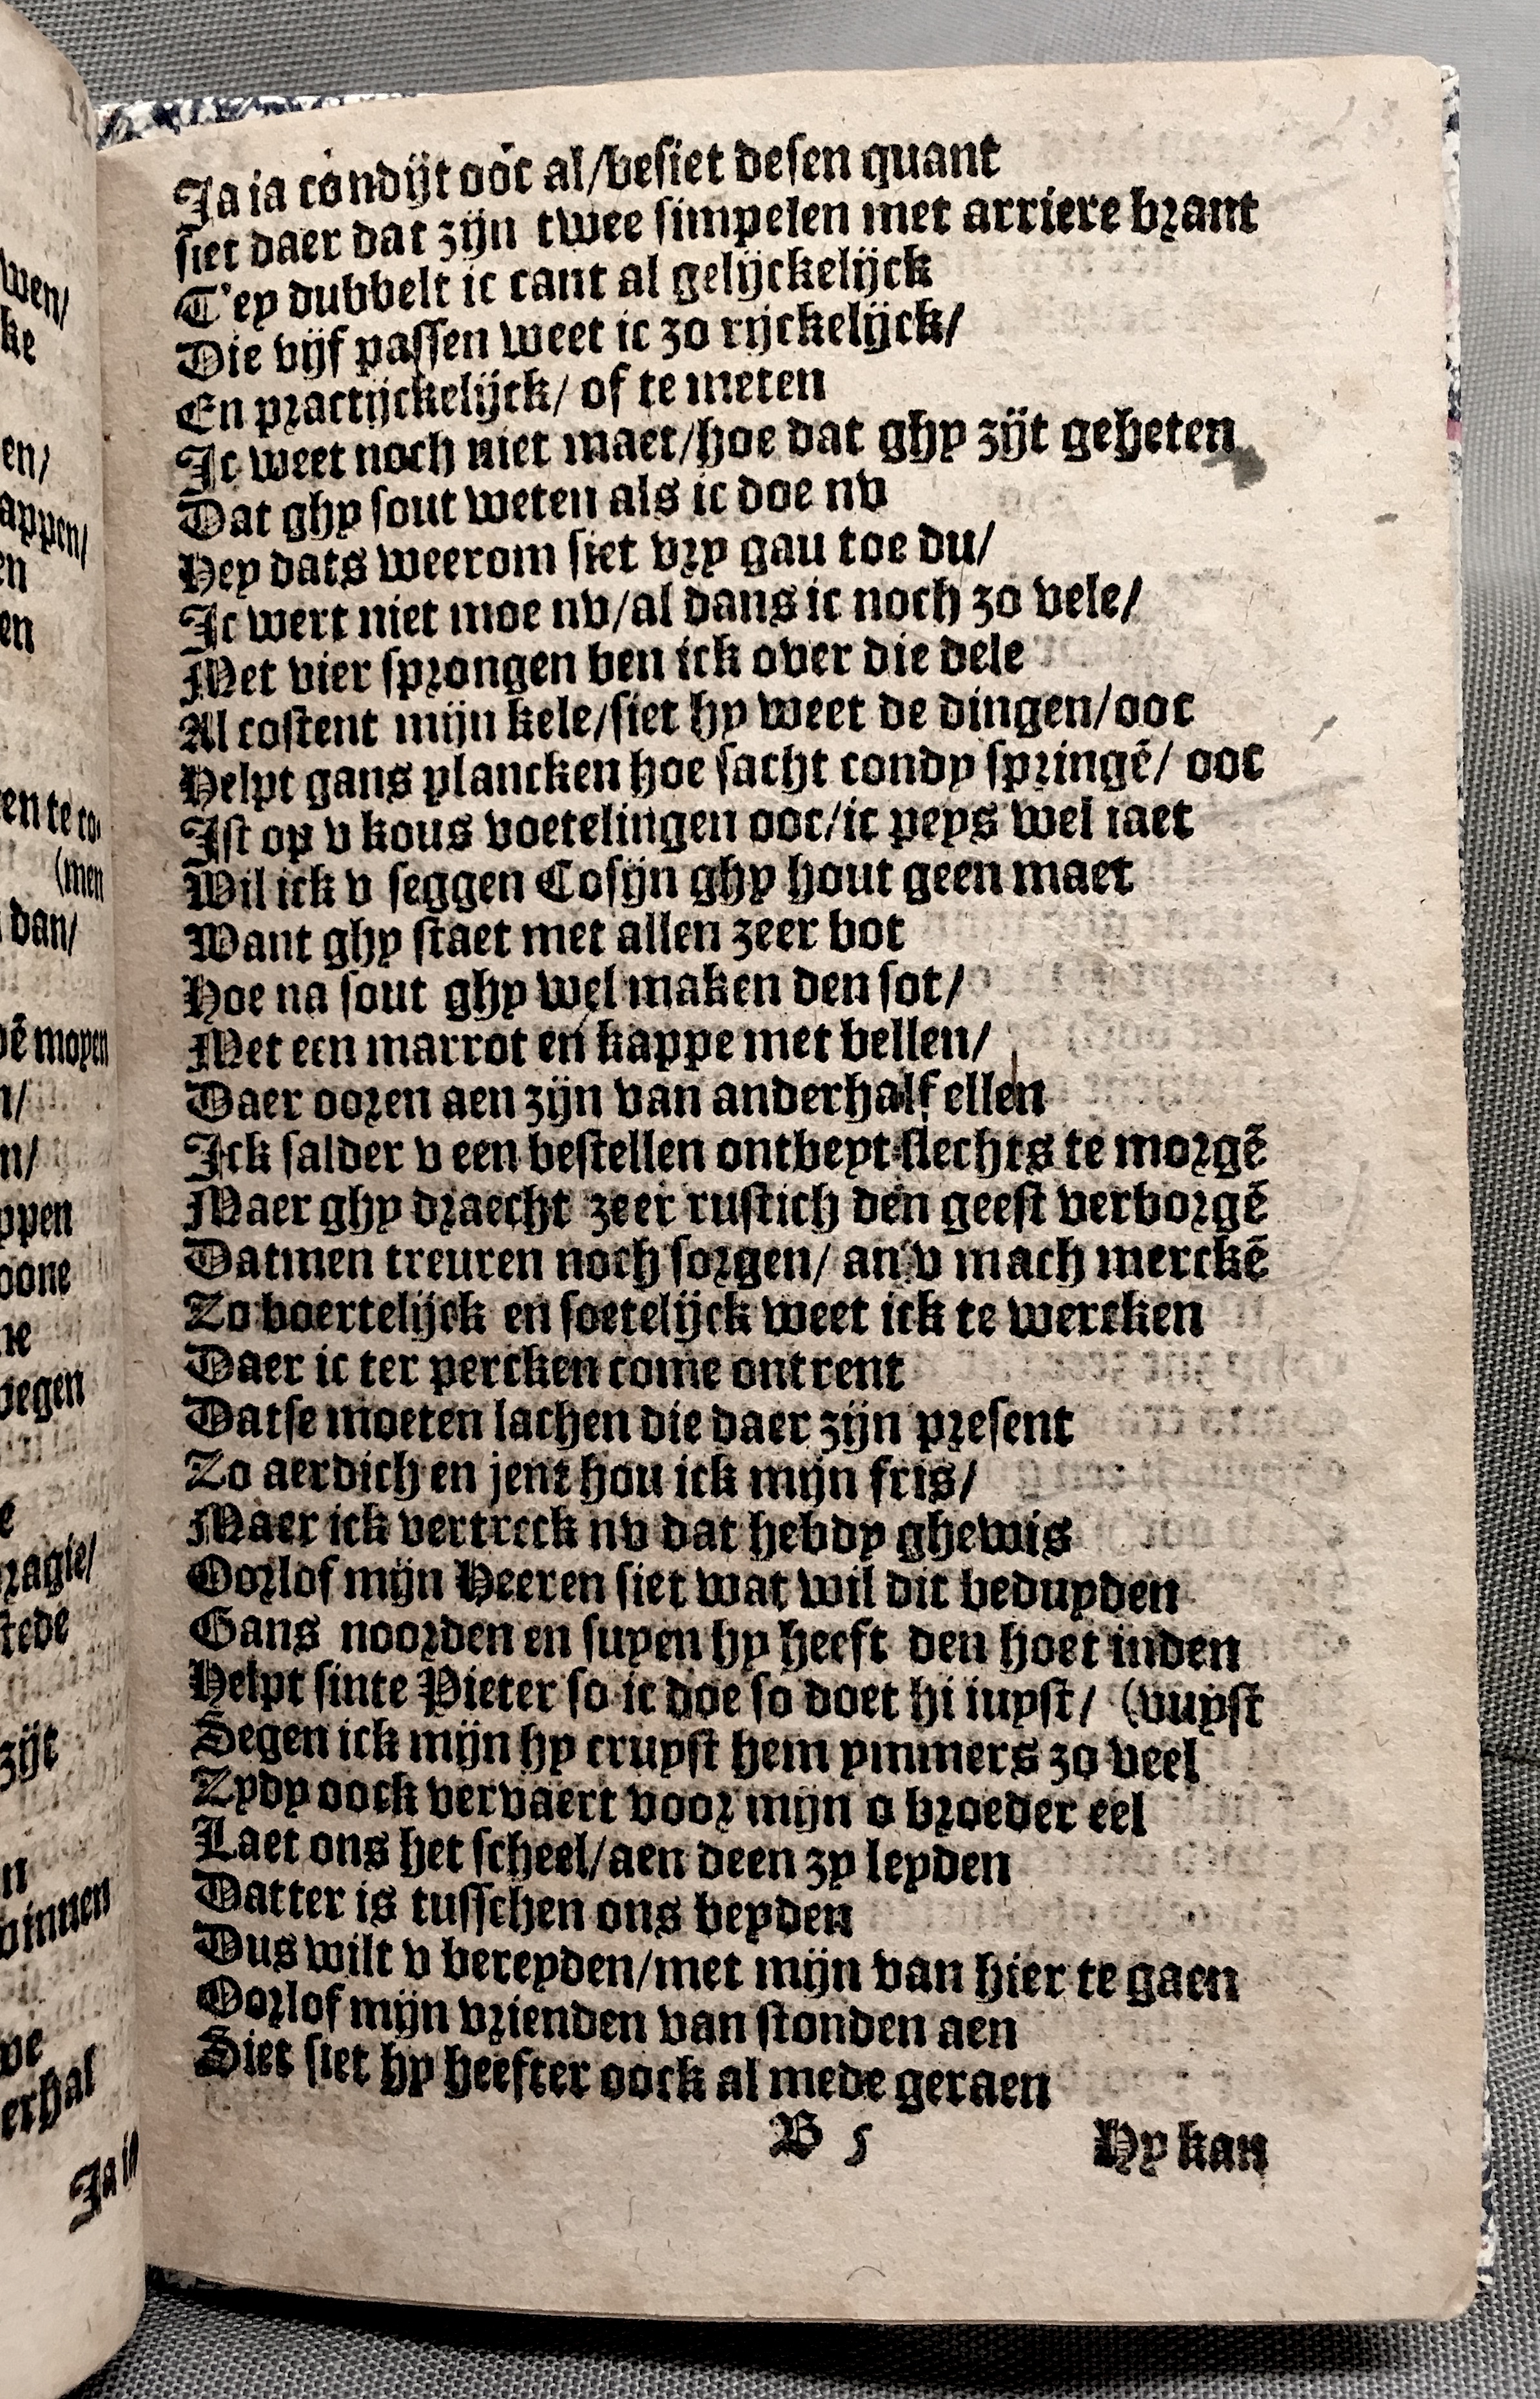 Ja ia condijt ooc al/besiet desen quant
siet daer dat zijn twee simpelen met arriere brant
T'ey dubbelt ic cant al gelijckelijck
Die vijf passen weet ic zo rijckelijck/
En practijckelijck/ of te meten
Ic weet noch niet maet/hoe dat ghy zijt geheten
Dat ghy sout weten als ic doe nv
Hey dats weerom siet vry gau toe du/
Ic wert niet moe nv/al dans ic noch zo vele/
Met vier sprongen ben ick over die dele
Al costent mijn kele/siet hy weet de dingen/ooc
Helpt gans plancken hoe sacht condy springē/ ooc
Ist op v kous voetelingen ooc/ic peys wel iaet
Wil ick v seggen Cosijn ghy hout geen maet
Want ghy staet met allen zeer bot
Hoe na sout ghy wel maken den sot/
Met een marrot en kappe met bellen/
Daer ooren aen zijn van anderhalf ellen
Ick salder v een bestellen ontbeyt slechts te morgē
Maer ghy draecht zeer rustich den geest verborgē
Datmen treuren noch sorgen/ an v mach merckē
Zo boertelijck en soetelijck weet ick te wercken
Daer ic ter percken come ontrent
Datse moeten lachen die daer zijn present
Zo aerdich en jent hou ick mijn fris/
Maer ick vertreck nv dat hebdy ghewis
Oorlof mijn Heeren siet wat wil dit beduyden
Gans noorden en suyen hy heeft den hoet inden
Helpt sinte Pieter so ic doe so doet hi iuyst/ (vuyst
Segen ick mijn hy cruyst hem ymmers zo veel
Zydy oock vervaert voor mijn o broeder eel
Laet ons het scheel/aen deen zy leyden
Datter is tusschen ons beyden
Dus wilt v bereyden/met mijn van hier te gaen
Oorlof mijn vrienden van stonden aen
Siet siet hy heefter oock al mede geraen
B 5 Hy kan